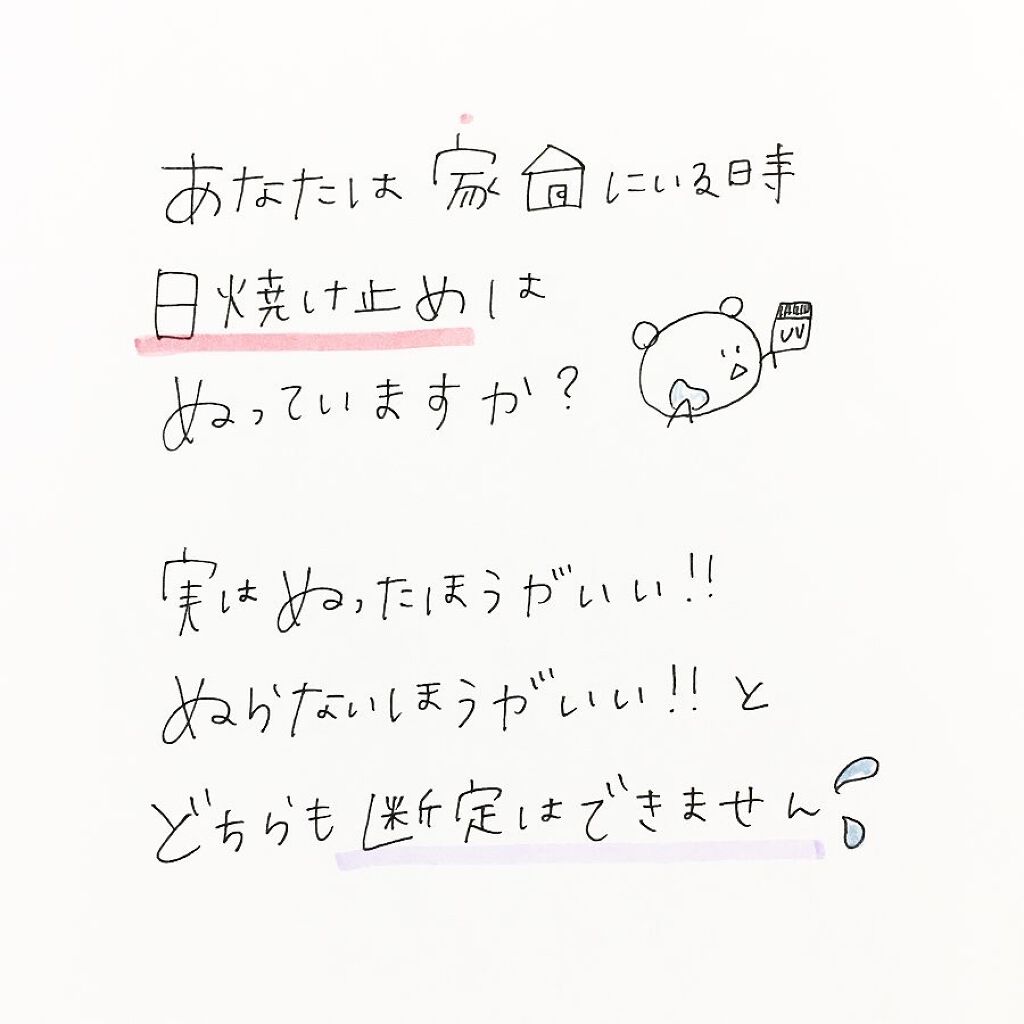 あなたは家にいる時
日焼け止めは
ぬっていますか?
UV
実はぬったほうがいい!!
ぬらないほうがいい!!と
どちらも断定はできません